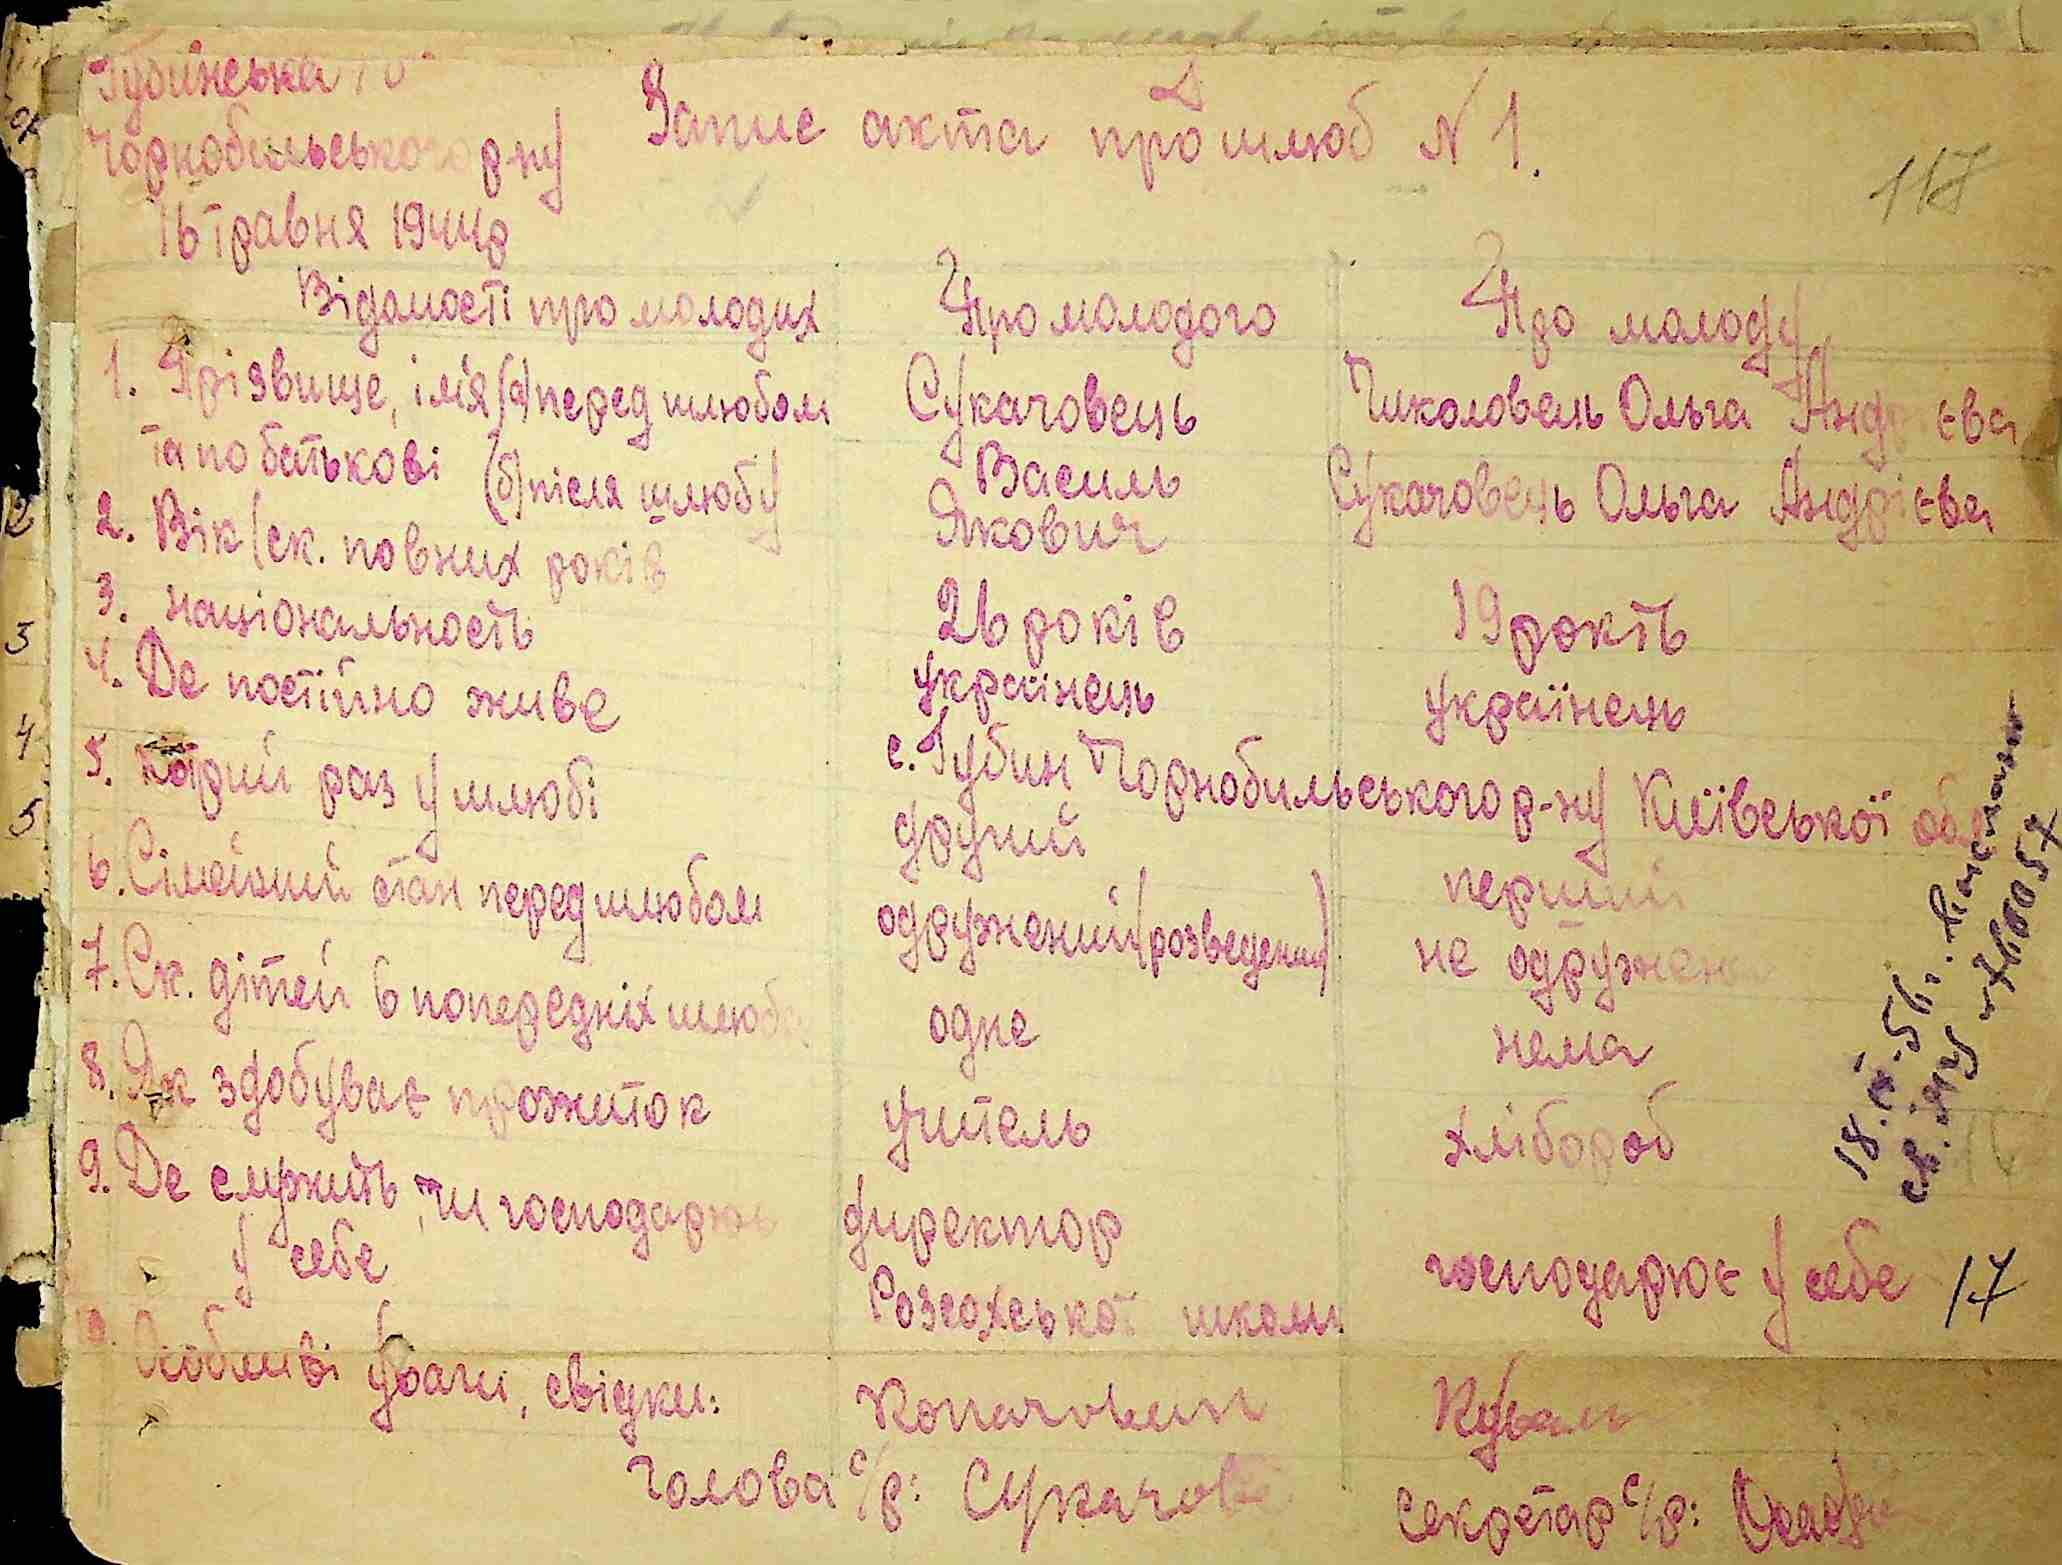 Губинська
Чорнобильського р-ну
16 травня 1944р
Запис акта про шлюб № 1.
117
Відомості про молодих Про молодого Про молоду
1. Прізвище, ім'я (а) перед шлюбом Сукачовець Чиколовець Ольга Андрієва
та по батькові (б) після шлюбу Василь Якович Сукачовець Ольга Андрієва
2. Вік (ск. повних років 26 років 19 років
3. національность українець українець
4. Де постійно живе с. Губин Чорнобильського р-ну Київської обл
5. котрий раз у шлюбі другий перший
6. Сімейний стан перед шлюбом одружений (розведений) не одружена
7. Ск. дітей в попередніх шлюбах одне нема
8. Як здобуває прожиток учитель хлібороб
9. Де служить, чи господарює у себе директор Розсохської школи господарює у себе
17
Особливі уваги, свідки:
Голова с/р: Секретар с/р: